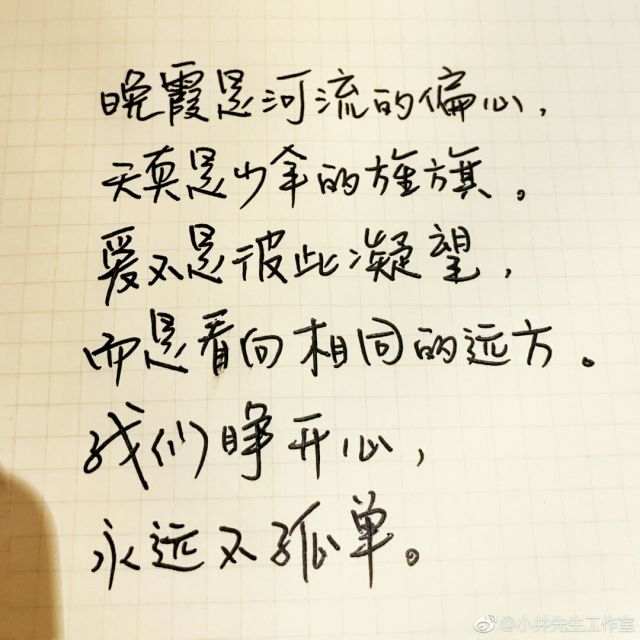 晚霞是河流的偏心，
天真是少年的旌旗。
爱不是彼此凝望，
而是看向相同的远方。
我们睁开心，
永远不孤单。
@小井先生工作室